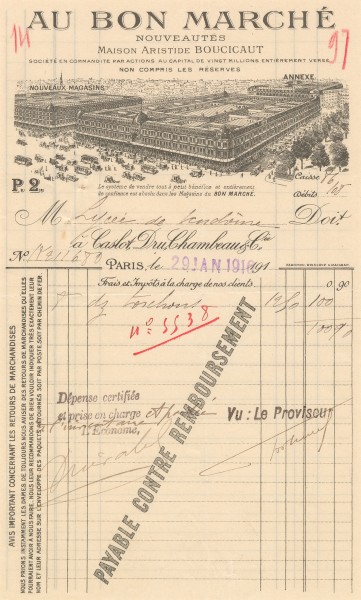 AU BON MARCHÉ
NOUVEAUTÉS
MAISON ARISTIDE BOUCICAUT
SOCIÉTÉ EN COMMANDITE PAR ACTIONS AU CAPITAL DE VINGT MILLIONS ENTIÈREMENT VERSÉ
NON COMPRIS LES RÉSERVES
14
97
NOUVEAUX MAGASINS
ANNEXE
P. 2
Le système de vendre tout à petit bénéfice et entièrement
de confiance est absolu dans les Magasins du BON MARCHÉ.
Caisse
Débits
M Lycée de Vendôme Doit
à Caslot, Dru, Chambeau & Cie
No
PARIS, le 29 JAN 191
Frais et Impôts à la charge de nos clients. 0.90
dz torchons 12 50 100
100 90
No 5538
Dépense certifiée
et prise en charge
L'Économe,
Vu : Le Proviseur
PAYABLE CONTRE REMBOURSEMENT
AVIS IMPORTANT CONCERNANT LES RETOURS DE MARCHANDISES
NOUS PRIONS INSTAMMENT LES DAMES DE TOUJOURS NOUS AVISER DES RETOURS DE MARCHANDISES QU'ELLES
POURRAIENT AVOIR À NOUS FAIRE. NOUS LEUR RECOMMANDONS DE BIEN VOULOIR INDIQUER TRÈS EXACTEMENT LEUR
NOM ET LEUR ADRESSE SUR L'ENVELOPPE DES PAQUETS RETOURNÉS SOIT PAR POSTE, SOIT PAR CHEMIN DE FER